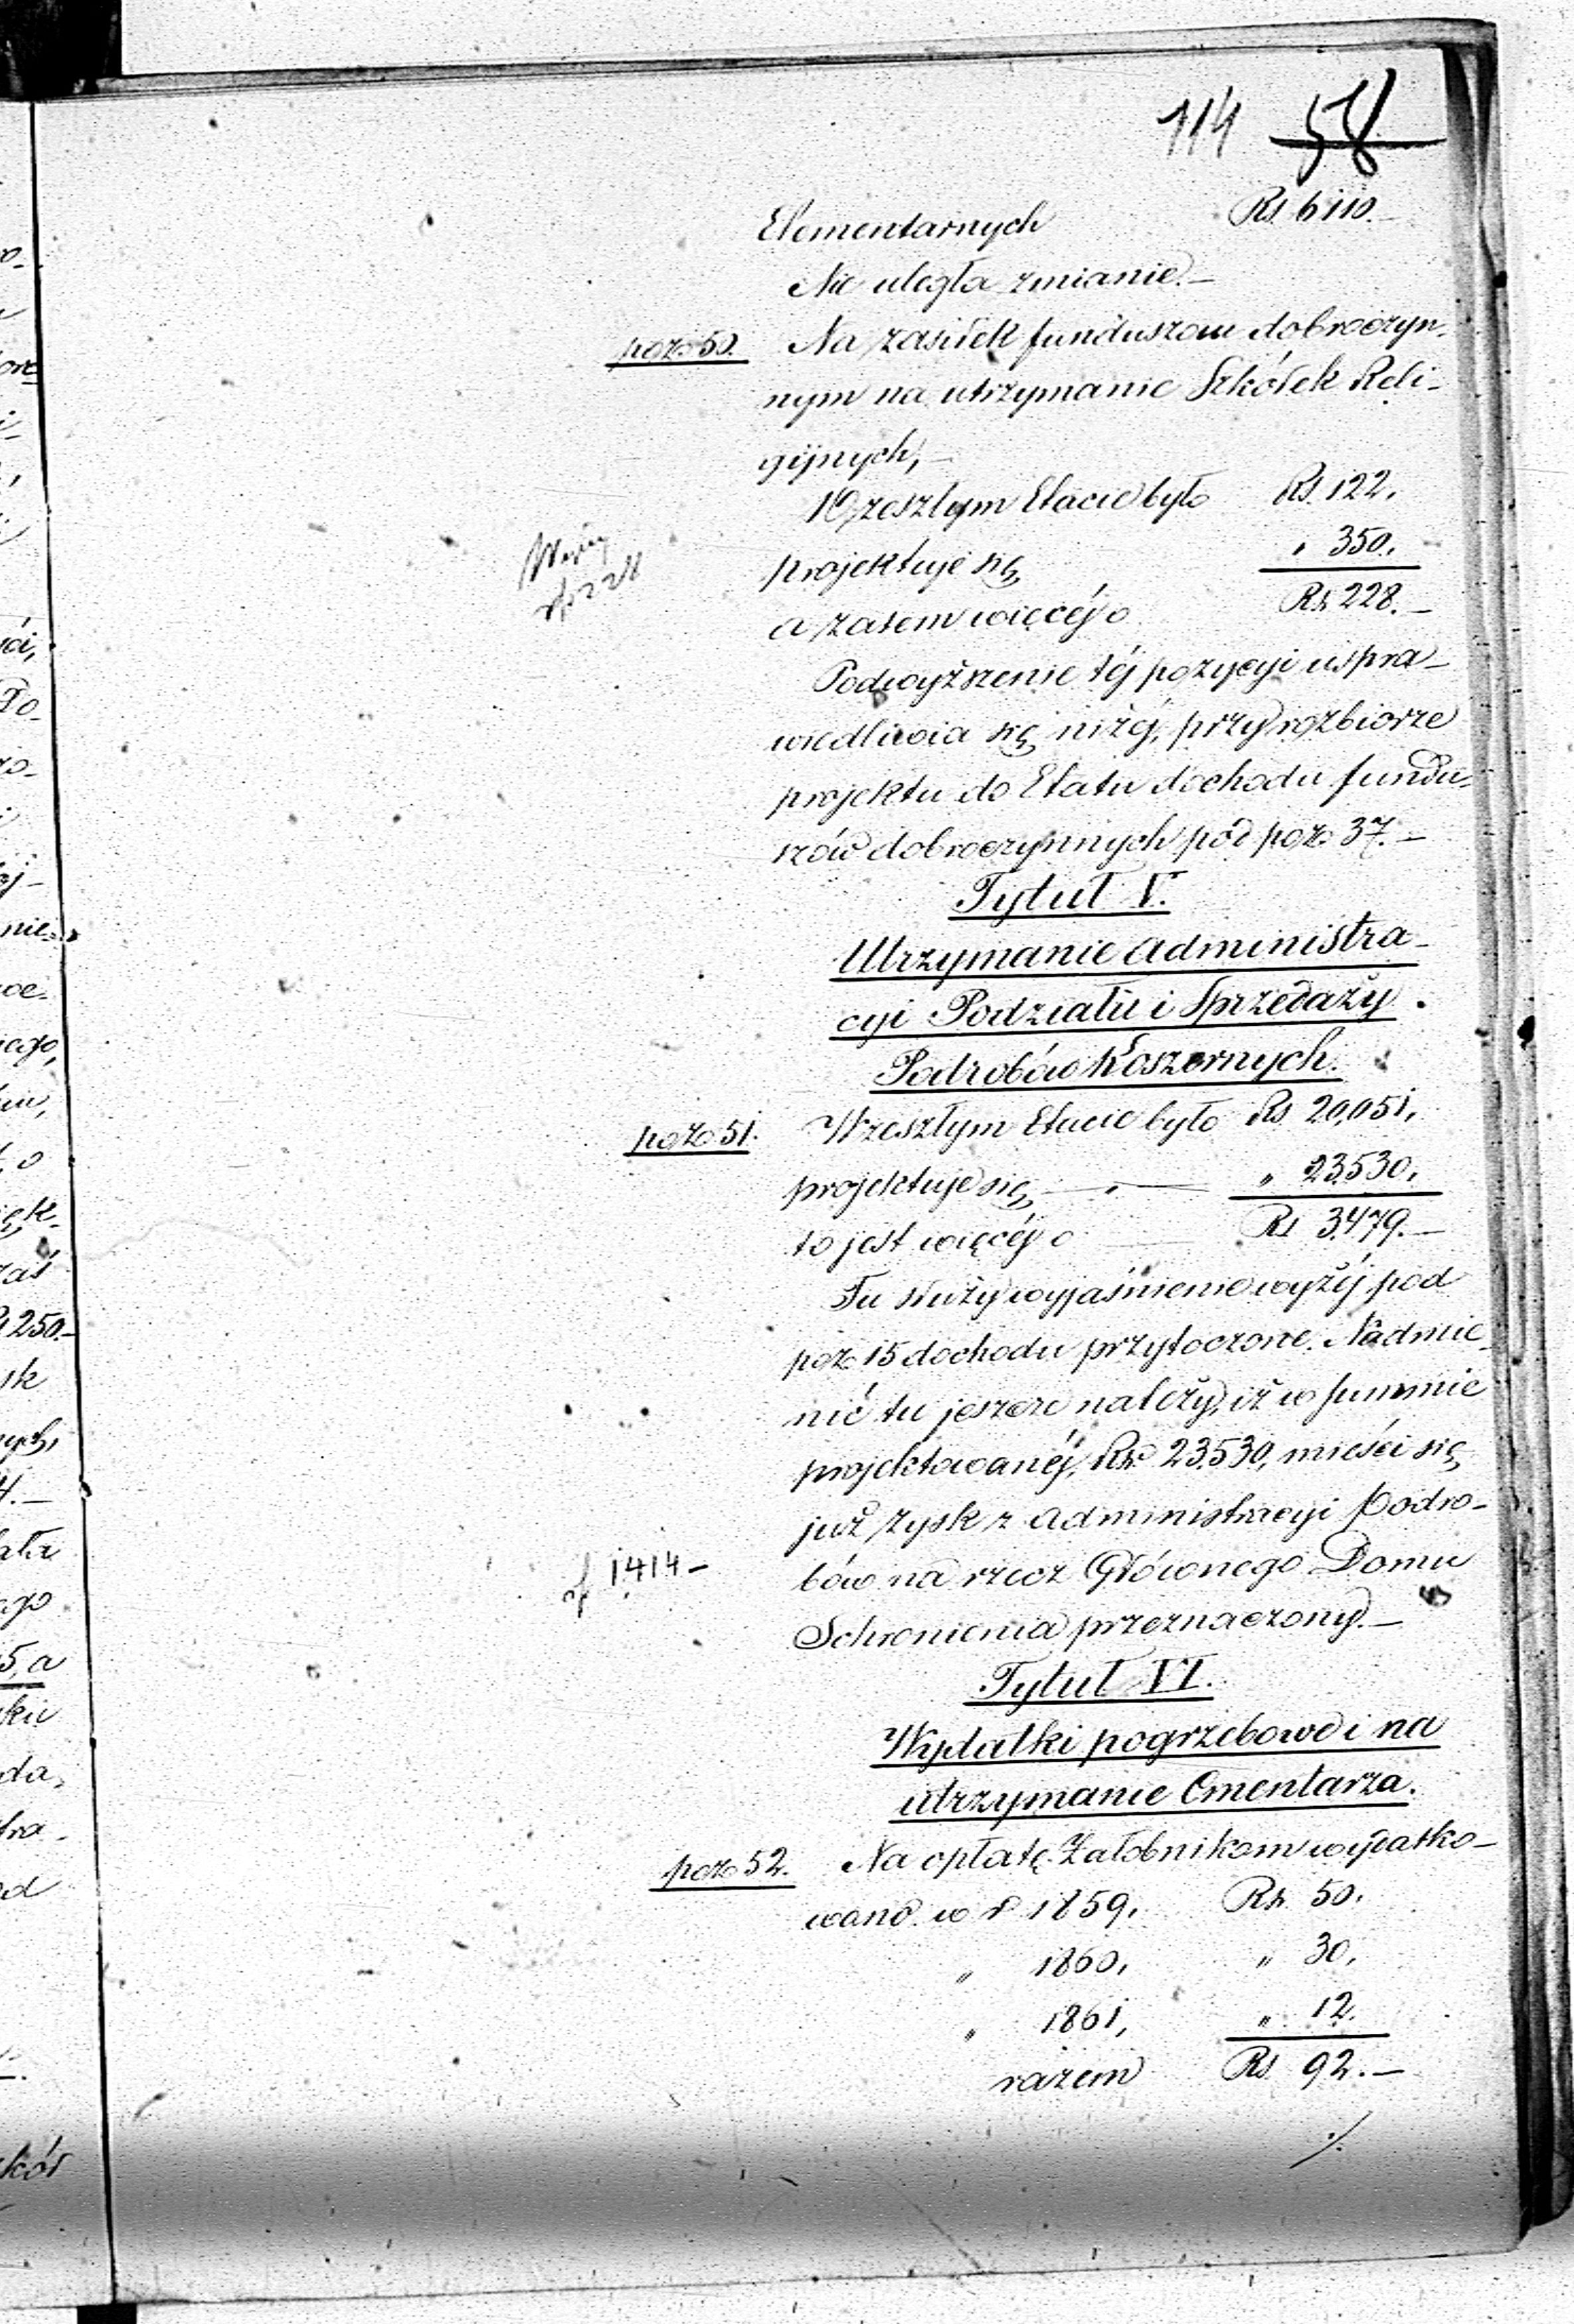 114 58
Elementarnych Rs. 6110.
Nie uległa zmianie.—
poz. 50. Na zasiłek funduszom dobroczyn-
nym na utrzymanie Szkółek Reli-
gijnych,—
W zeszłym Etacie było Rs. 122.
projektuje się " 350.
a zatem więcéj o Rs. 228.—
Podwyższenie téj pozycyi uspra-
wiedliwia się niżéj, przy rozbiorze
projektu do Etatu dochodu fundu-
szów dobroczynnych pod poz. 37.—
Tytuł V.
Utrzymanie Administra-
cyi Podziału i Sprzedaży
Podrobów Koszernych.
poz. 51. W zeszłym Etacie było Rs 20,051.
projektuje się — " — " 23530.
to jest więcéj o Rs 3479.—
Tu służy wyjaśnienie wyżéj pod
poz. 15 dochodu przytoczone. Nadmie-
nić tu jeszcze należy, iż w summie
projektowanéj, Rs. 23530, mieści się
już zysk z Administracyi Podro-
1414— bów na rzecz Głównego Domu
Schronienia przeznaczony.—
Tytuł VI.
Wydatki pogrzebowe i na
utrzymanie Cmentarza.
poz. 52. Na opłatę Żałobnikom wydatko-
wano w r. 1859, Rs. 50.
" 1860, " 30.
" 1861, " 12.
razem Rs 92.—
./.